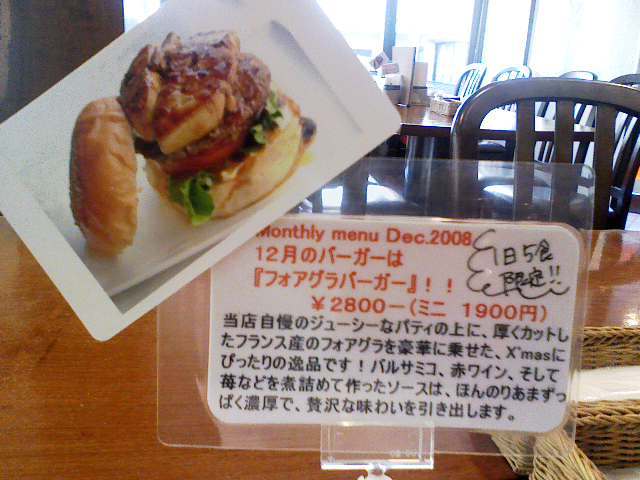 Monthly menu Dec.2008
1日5食
限定!!
12月のバーガーは
『フォアグラバーガー』！！
￥2800―(ミニ 1900円)
当店自慢のジューシーなパティの上に、厚くカットし
たフランス産のフォアグラを豪華に乗せた、X'masに
ぴったりの逸品です！バルサミコ、赤ワイン、そして
苺などを煮詰めて作ったソースは、ほんのりあまずっ
ぱく濃厚で、贅沢な味わいを引き出します。